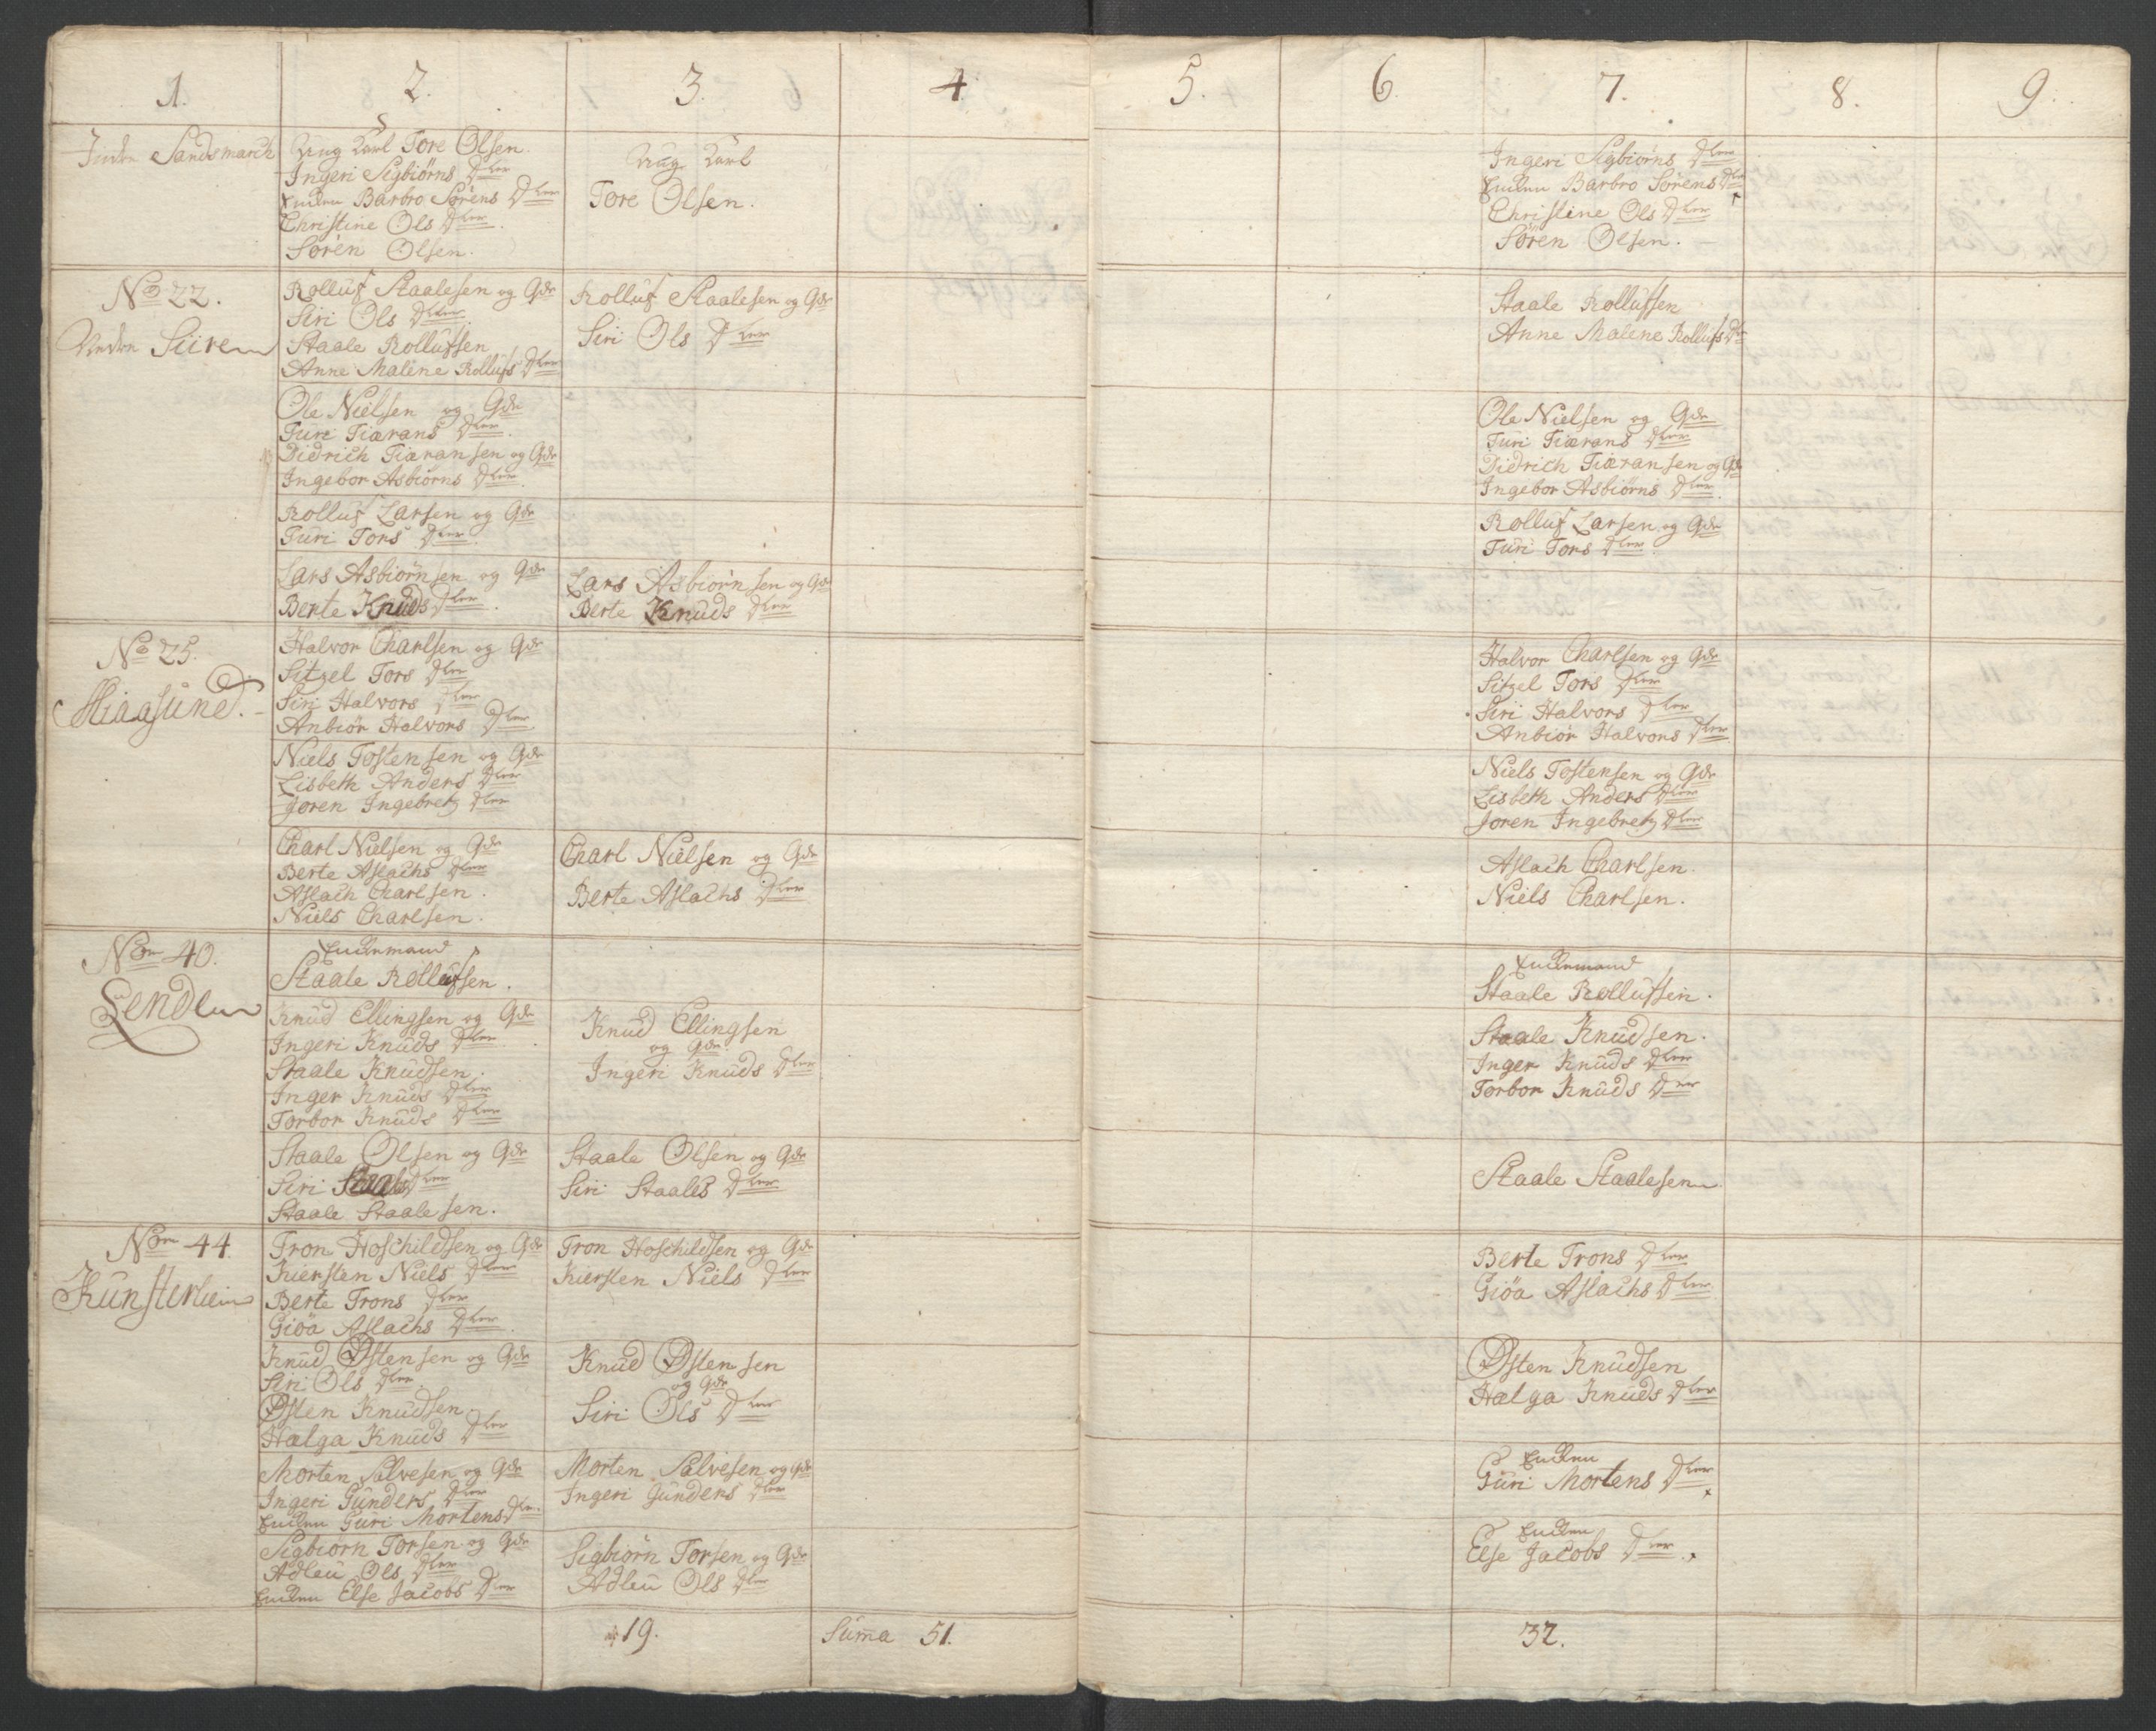 1. 2. 3. 4. 5. 6. 7. 8. 9.
Sandsmarch
Ung Karl Tore Olsen.
Ingeri Sigbiörns Dtter
Barbro Sörens Dtter
Christine Ols Dtter
Sören Olsen.
Ung Karl
Tore Olsen.
Ingeri Sigbiörns Dtter
Barbro Sörens Dtter
Christine Ols Dtter
Sören Olsen.
No 22.
Rolluf Staalesen og Qde
Siri Ols Dtter
Staale Rollufsen
Anne Malene Rollufs Dtter
Rolluf Staalesen og Qde
Siri Ols Dtter
Staale Rollufsen
Anne Malene Rollufs Dtter
Ole Nielsen og Qde
Turi Tiærans Dtter
Didrich Tiæransen og Qde
Ingebor Asbiörns Dtter
Ole Nielsen og Qde
Turi Tiærans Dtter
Didrich Tiæransen og Qde
Ingebor Asbiörns Dtter
Rolluf Larsen og Qde
Turi Tors Dtter
Rolluf Larsen og Qde
Turi Tors Dtter
Lars Asbiörnsen og Qde
Berte Knuds Dtter
Lars Asbiörnsen og Qde
Berte Knuds Dtter
No 25.
Miaasund.
Halvor Charlsen og Qde
Sitzel Tors Dtter
Siri Halvors Dtter
Anbiör Halvors Dtter
Halvor Charlsen og Qde
Sitzel Tors Dtter
Siri Halvors Dtter
Anbiör Halvors Dtter
Niels Tostensen og Qde
Lisbeth Anders Dtter
Joren Ingebretz Dtter
Niels Tostensen og Qde
Lisbeth Anders Dtter
Joren Ingebretz Dtter
Charl Nielsen og Qde
Berte Aslachs Dtter
Aslach Charlsen.
Niels Charlsen.
Charl Nielsen og Qde
Berte Aslachs Dtter
Aslach Charlsen.
Niels Charlsen.
No 40.
Lenden
Enckemand
Staale Rollufsen.
Enckemand
Staale Rollufsen.
Knud Ellingsen og Qde
Ingeri Knuds Dtter
Staale Knudsen.
Inger Knuds Dtter
Torbor Knuds Dtter
Knud Ellingsen
og Qde
Ingeri Knuds Dtter
Staale Knudsen.
Inger Knuds Dtter
Torbor Knuds Dtter
Staale Olsen og Qde
Siri Staales Dtter
Staale Staalesen.
Staale Olsen og Qde
Siri Staales Dtter
Staale Staalesen
No 44.
Tron Hoschildsen og Qde
Kiersten Niels Dtter
Berte Trons Dtter
Giöa Aslachs Dtter
Tron Hoschildsen og Qde
Kiersten Niels Dtter
Berte Trons Dtter
Giöa Aslachs Dtter
Knud Østensen og Qde
Siri Ols Dtter
Østen Knudsen.
Hælga Knuds Dtter
Knud Østensen
og Qde
Siri Ols Dtter
Østen Knudsen
Hælga Knuds Dtter
Morten Salvesen og Qde
Ingeri Gunders Dtter
Guri Mortens Dtr.
Morten Salvesen og Qde
Ingeri Gunders Dtter
Guri Mortens Dtter
Sigbiörn Torsen og Qde
Adleu Ols Dtter
Else Jacobs Dtter
Sigbiörn Torsen og Qde
Adleu Ols Dtter
Else Jacobs Dtter
19. Summa 51. 32.